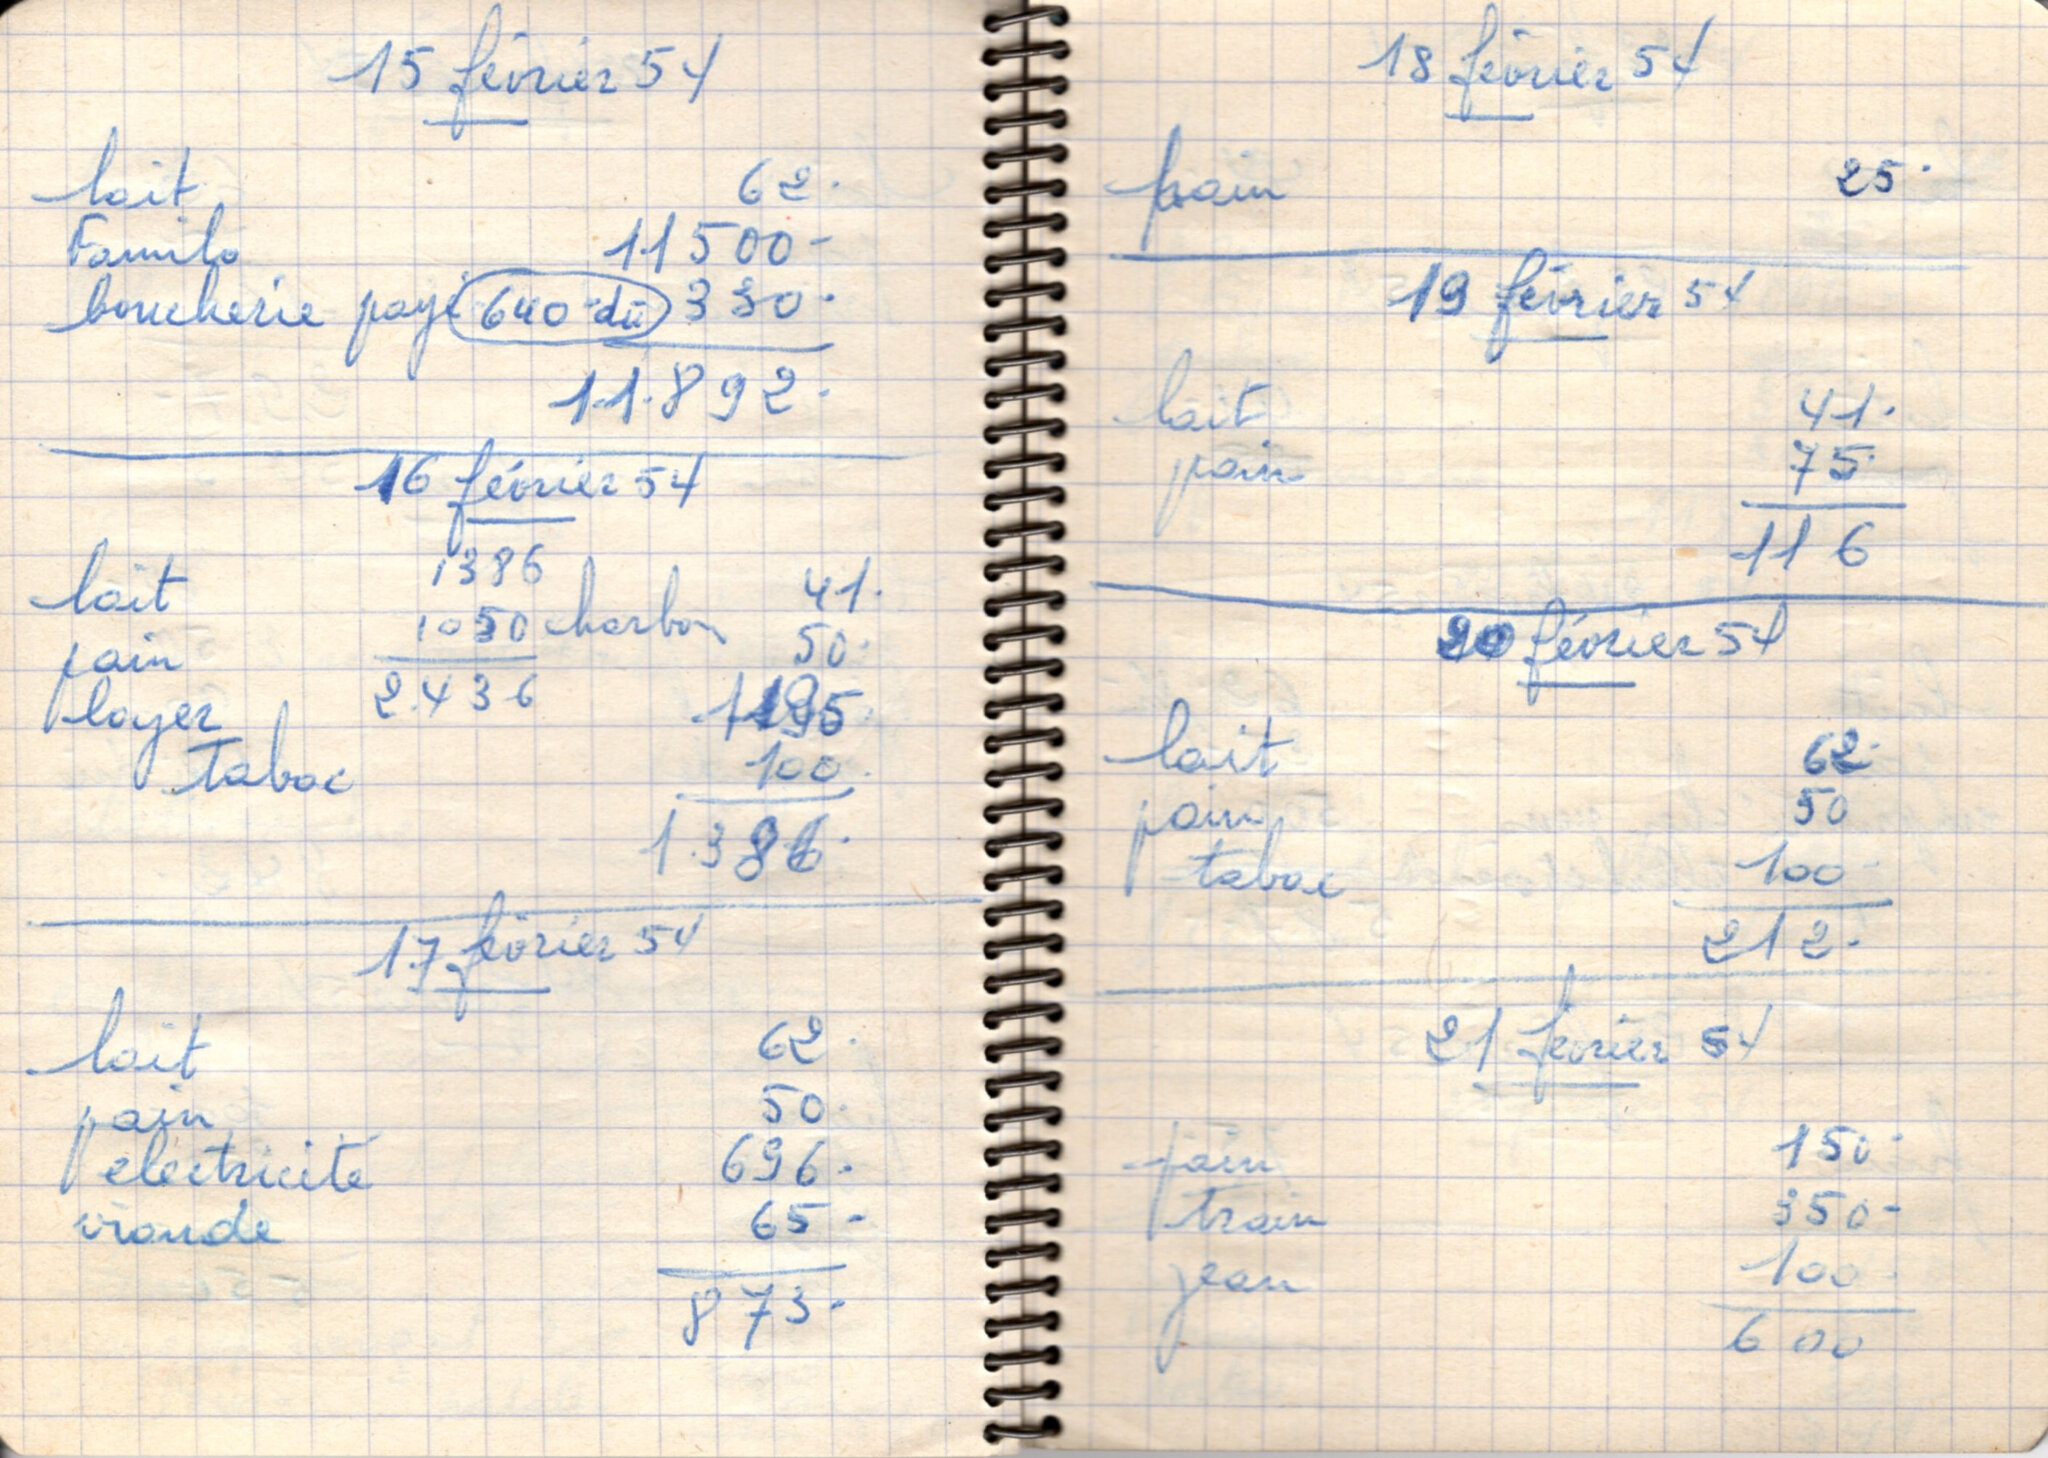 15 février 54
lait 62.
Familo 11500-
boucherie payé 640 dû 330.
11.892.
16 février 54
1386
lait 41.
1050 charbon
pain 50.
2.436
loyer 1195.
Tabac 100.
1.386.
17 février 54
lait 62.
pain 50.
electricité 696.
viande 65-
873.
18 février 54
pain 25.
19 février 54
lait 41.
pain 75.
116
20 février 54
lait 62.
pain 50
tabac 100-
212.
21 février 54
pain 150-
train 350-
jean 100.
600